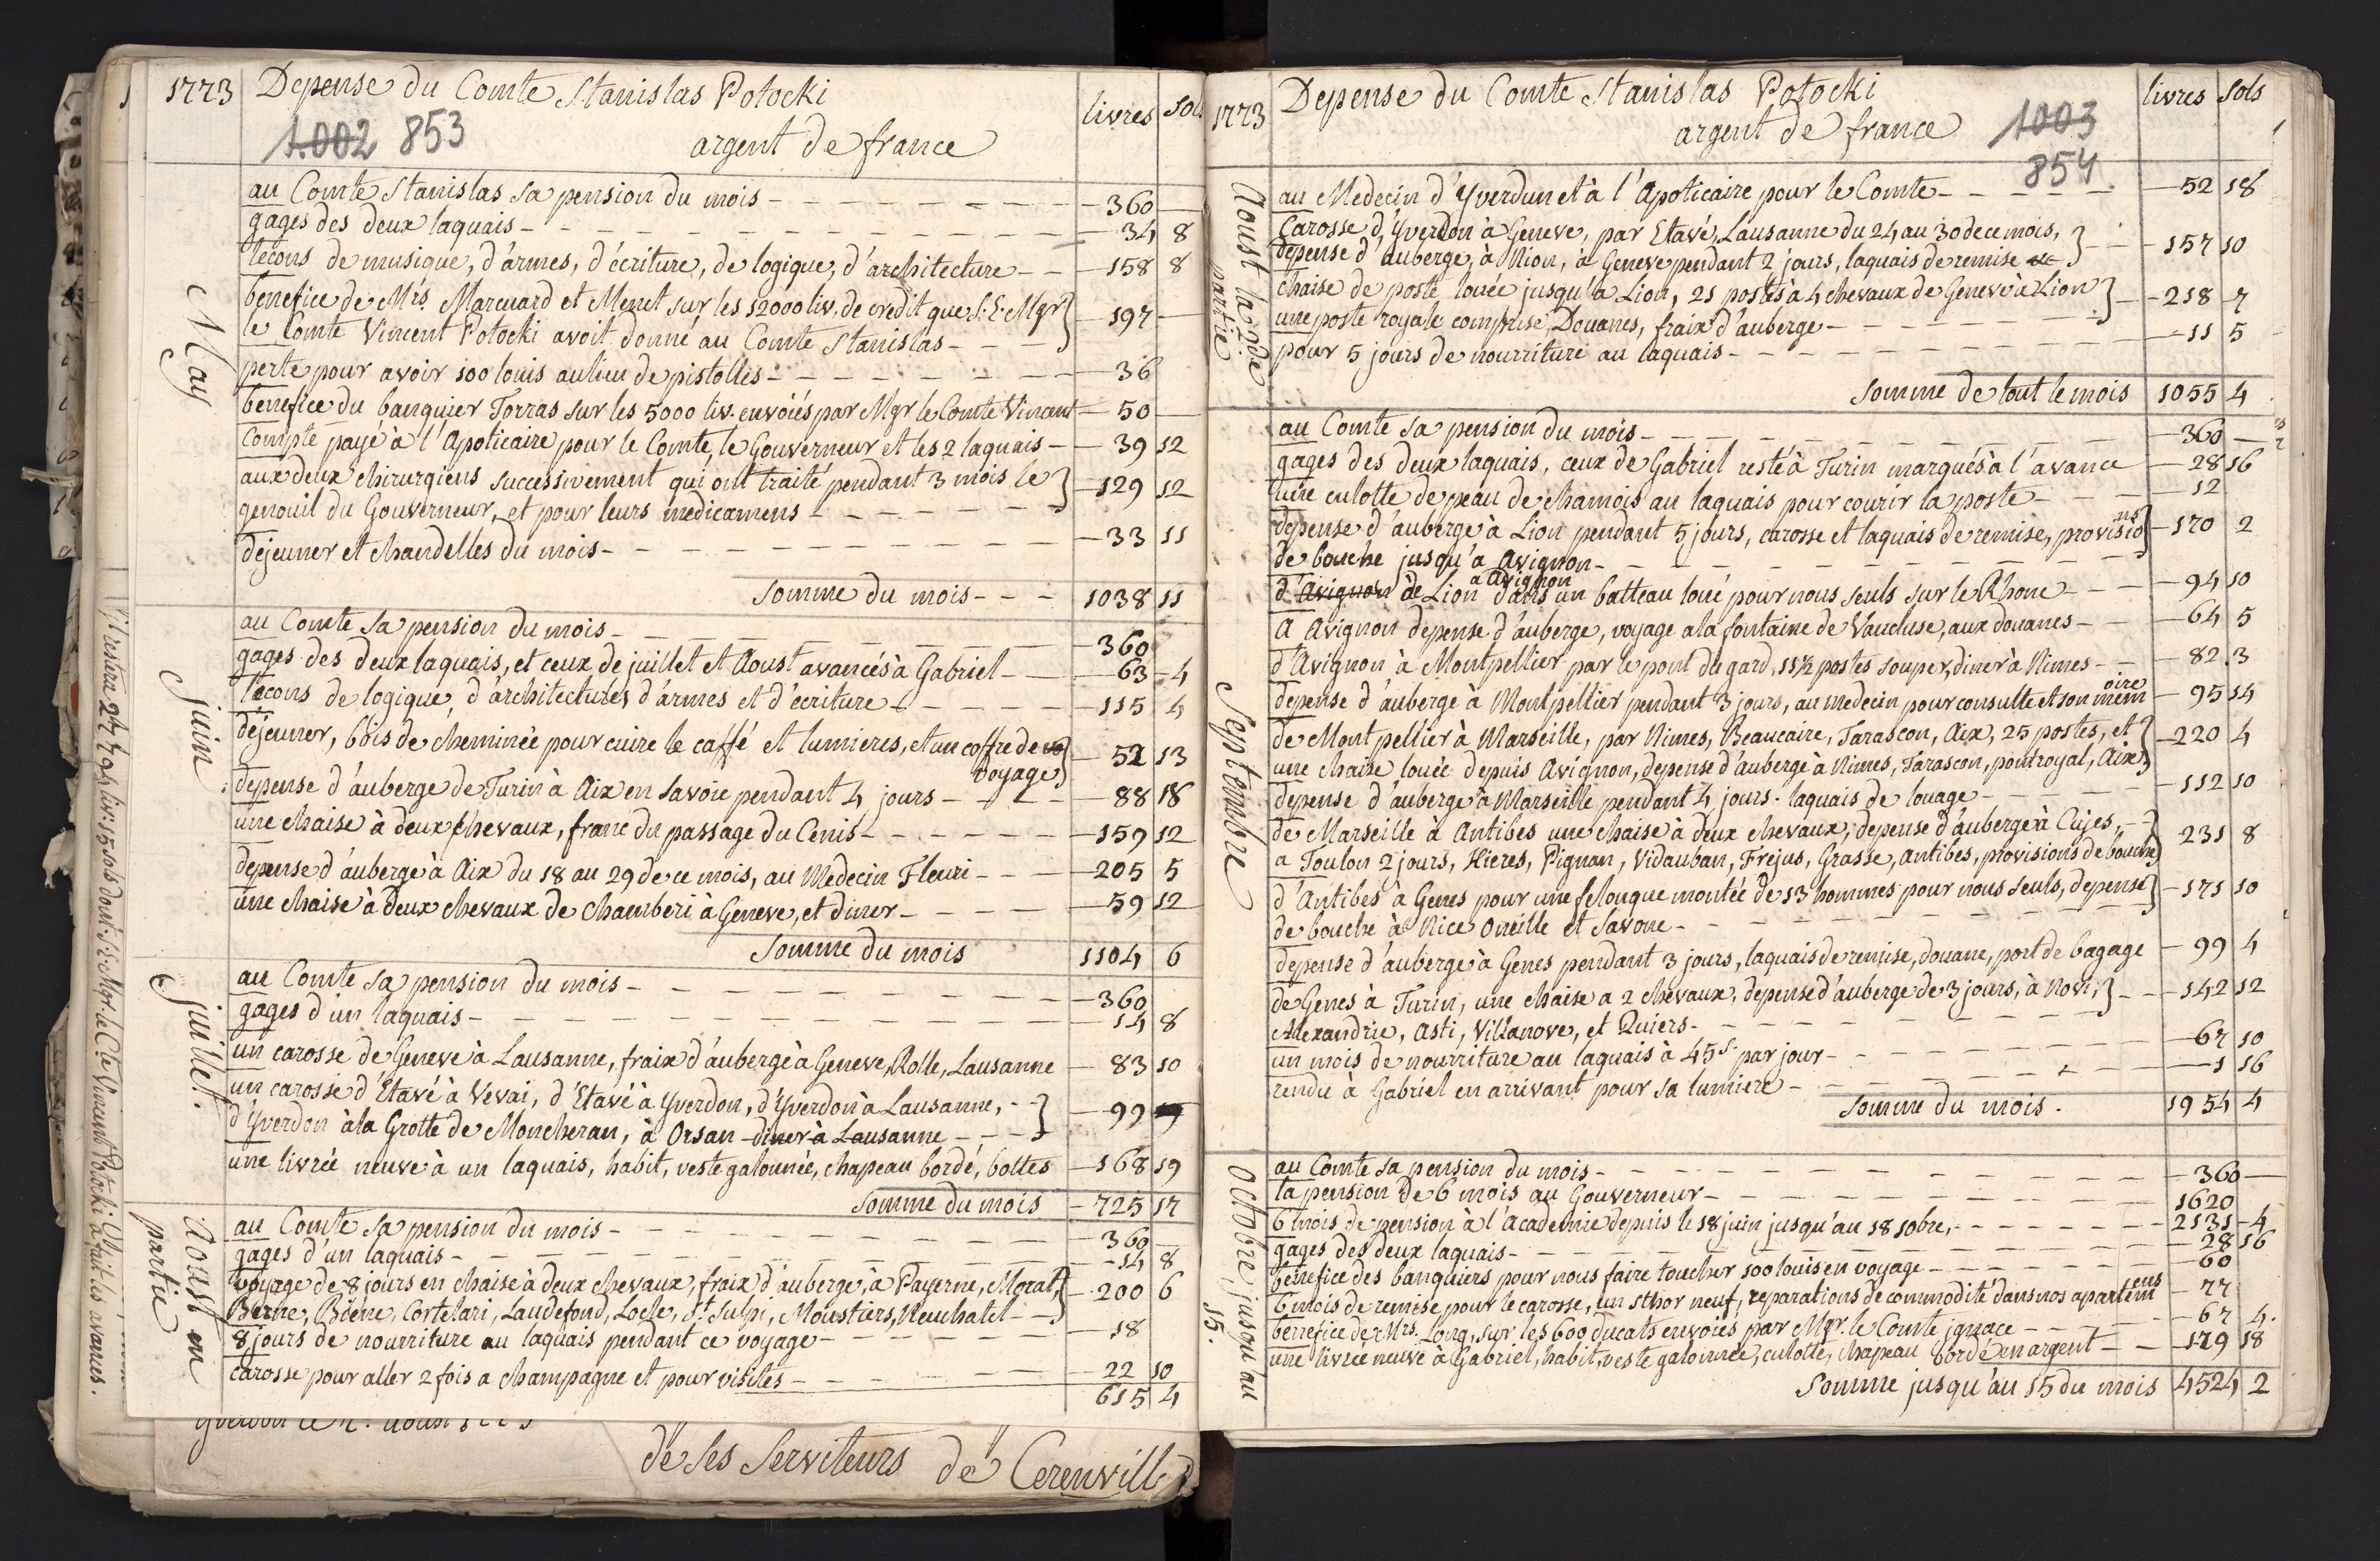 1773 Depense du Comte Stanislas Potocki livres sols
1.002 853 argent de france
May
au Comte Stanislas sa pension du mois - 360
gages des deux laquais - 34 8
leçons de musique, d'armes, d'écriture, de logique, d'architecture - 158 8
benefice de Mrs. Marcuard et Menet sur les 12000 liv. de credit que S. E. Mgr
le Comte Vincent Potocki avoit donné au Comte Stanislas - 197
perte pour avoir 100 louis au lieu de pistolles - 36
benefice du banquier Torras sur les 5000 liv. envoiés par Mgr le Comte Vincent - 50
compte payé à l'Apoticaire pour le Comte, le Gouverneur et les 2 laquais - 39 12
aux deux chirurgiens successivement qui ont traité pendant 3 mois le
genouil du Gouverneur, et pour leurs medicamens - 129 12
dejeuner et chandelles du mois - 33 11
Somme du mois - 1038 11
Juin
au Comte sa pension du mois - 360
gages des deux laquais, et ceux de juillet et Aoust avancés à Gabriel - 63 4
leçons de logique, d'architecture, d'armes et d'écriture - 115 4
déjeuner, bois de cheminée pour cuire le caffé et lumieres, et un coffre de vo
voyage 52 13
depense d'auberge de Turin à Aix en Savoie pendant 4 jours - 88 18
une chaise à deux chevaux, franc du passage du Cenis - 159 12
depense d'auberge à Aix du 18 au 29 de ce mois, au Medecin Fleuri - 205 5
une chaise à deux chevaux de Chamberi à Geneve, et diner - 59 12
Somme du mois 1104 6
Juillet.
au Comte sa pension du mois - 360
gages d'un laquais - 14 8
un carosse de Geneve à Lausanne, fraix d'auberge à Geneve, Rolle, Lausanne 83 10
un carosse d'Etavé à Vevai, d'Etavé à Yverdon, d'Yverdon à Lausanne,
d'Yverdon à la Grotte de Moncheran, à Orsan - diner à Lausanne - 99
une livrée neuve à un laquais, habit, veste galounée, chapeau bordé, bottes 168 19
Somme du mois 725 17
Aoust en partie
au Comte sa pension du mois - 360
gages d'un laquais - 14 8
voyage de 8 jours en chaise à deux chevaux, fraix d'auberge, à Payerne, Morat,
Berne, Biene, Cortelari, Laudefond, Locle, St. Sulpi, Moustiers, Neuchatel - 200 6
8 jours de nourriture au laquais pendant ce voyage - 18
carosse pour aller 2 fois a champagne et pour visites - 22 10
615 4
de ses Serviteurs de Cerenville
Il restera 2474 liv. 15 sols dont S. E. Mgr. le Cte. Vincent Potocki a fait les avances.
1773 Depense du Comte Stanislas Potocki livres sols
argent de france 1003
854
Aoust la 2de partie
au Medecin d'Yverdun et à l'Apoticaire pour le Comte - 52 18
Carosse d'Yverdon à Geneve, par Etavé, Lausanne du 24 au 30 de ce mois,
depense d'auberge, à Nion, à Geneve pendant 2 jours, laquais de remise 157 10
chaise de poste louée jusqu'à Lion, 21 postes à 4 chevaux de Geneve à Lion
une poste royale comprise, Douanes, fraix d'auberge - 218 7
pour 5 jours de nourriture au laquais - 11 5
Somme de tout le mois 1055 4
Septembre
au Comte sa pension du mois - 360
gages des deux laquais, ceux de Gabriel resté à Turin marqués à l'avance 28 16
une culotte de peau de chamois au laquais pour courir la poste - 12
depense d'auberge à Lion pendant 5 jours, carosse et laquais de remise, provisions
de bouche jusqu'a Avignon - 170 2
d'Avignon de Lion a Avignon dans un batteau loué pour nous seuls sur le Rhone - 94 10
A Avignon depense d'auberge, voyage a la fontaine de Vaucluse, aux douanes - 64 5
d'Avignon à Montpellier par le pont du gard, 11½ postes souper, diner à Nimes - 82 3
depense d'auberge à Montpellier pendant 3 jours, au medecin pour consulte et son memoire 95 14
de Montpellier à Marseille, par Nimes, Beaucaire, Tarascon, Aix, 25 postes, et
une chaise louée depuis Avignon, depense d'auberge à Nimes, Tarascon, pont royal, Aix 220 4
depense d'auberge à Marseille pendant 4 jours. laquais de louage - 112 10
de Marseille à Antibes une chaise à deux chevaux, depense d'auberge à Cujes,
a Toulon 2 jours, Hieres, Pignan, Vidauban, Frejus, Grasse, Antibes, provisions de bouche 231 8
d'Antibes à Genes pour une felouque montée de 13 hommes pour nous seuls, depense
de bouche à Nice Oneille et Savone - 171 10
depense d'auberge à Genes pendant 3 jours, laquais de remise, douane, port de bagage 99 4
de Genes à Turin, une chaise a 2 chevaux, depense d'auberge de 3 jours, à Novi,
Alexandrie, Asti, Villanove, et Quiers - 142 12
un mois de nourriture au laquais à 45 s. par jour - 67 10
rendu à Gabriel en arrivant pour sa lumiere - 1 16
Somme du mois. 1954 4
Octobre, jusqu'au 15.
au Comte sa pension du mois - 360
la pension de 6 mois au Gouverneur - 1620
6 mois de pension à l'Academie depuis le 18 juin jusqu'au 18 10bre, - 2131 4
gages des deux laquais - 28 16
benefice des banquiers pour nous faire toucher 100 louis en voyage - 60
6 mois de remise pour le carosse, un sthor neuf, reparations de commodité dans nos apartemens 77
benefice de Mrs. Long, sur les 600 ducats envoiés par Mgr. le Comte ignace - 67 4.
une livrée neuve à Gabriel, habit, veste galonnée, culotte, chapeau bordé en argent - 179 18
Somme jusqu'au 15 du mois 4524 2